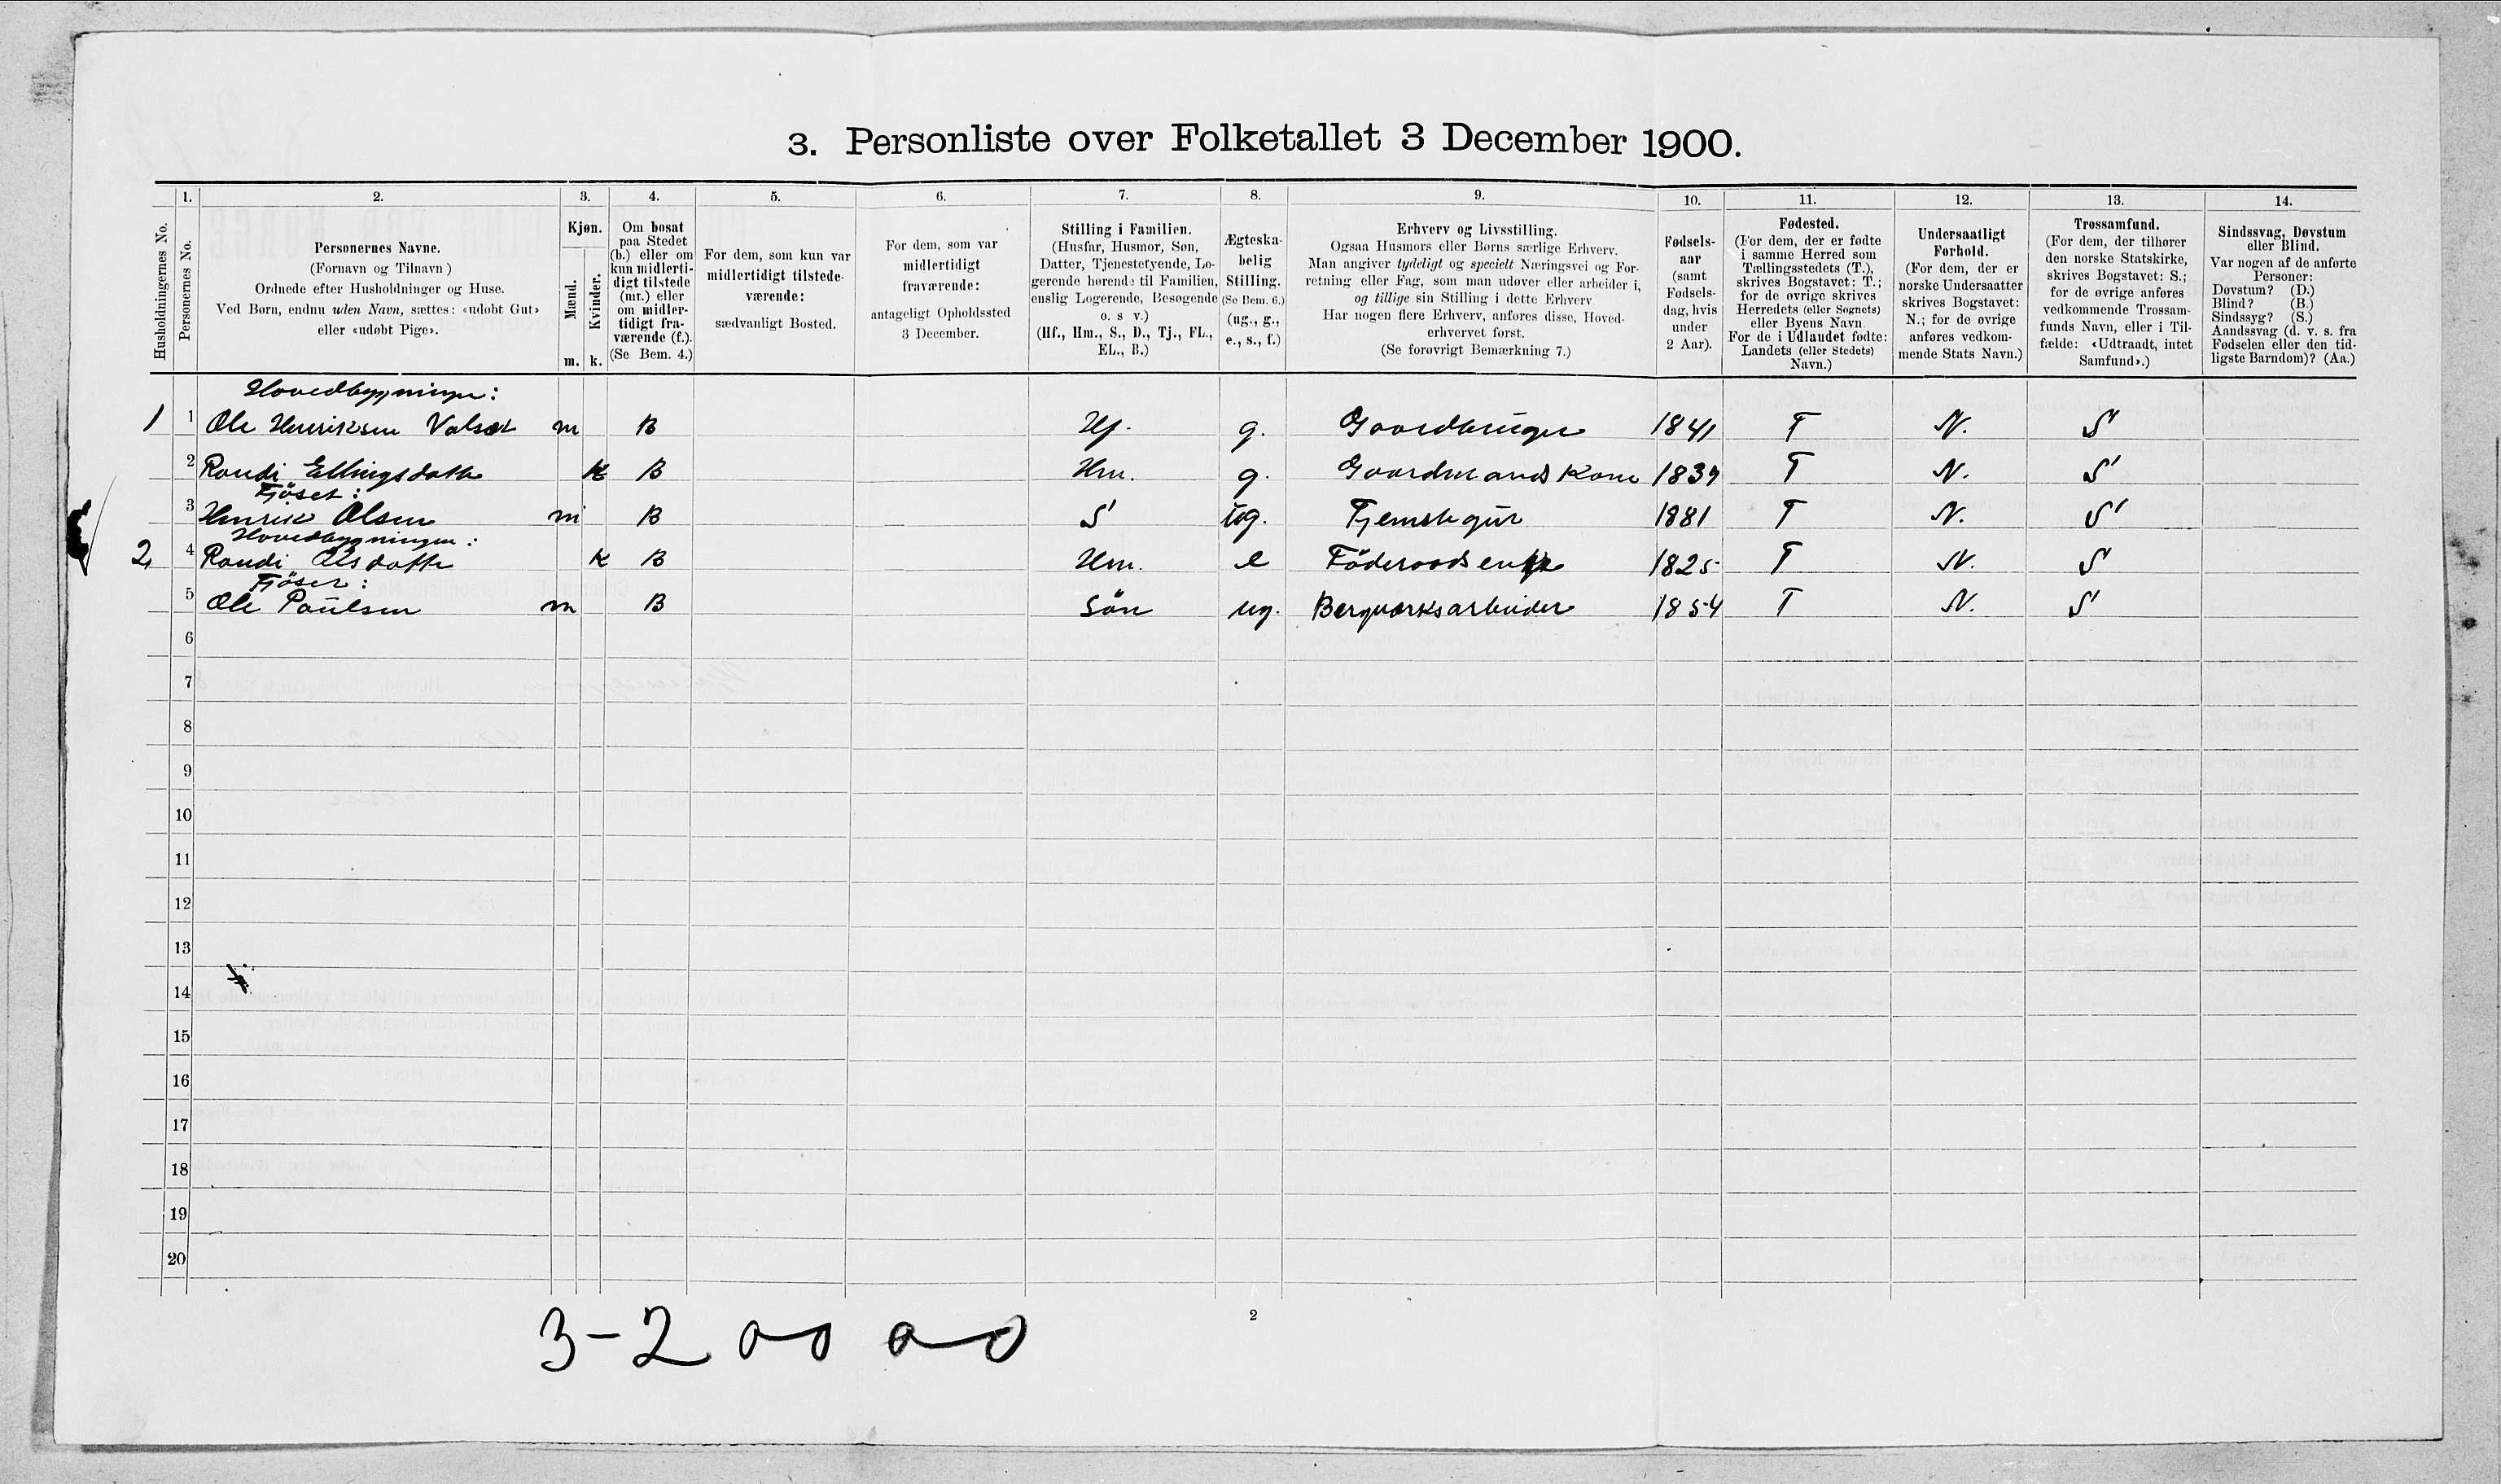 3. Personliste over Folketallet 3 December 1900.
Husholdningernes No.
1.
Personernes No.
2.
Personernes Navne.
(Fornavn og Tilnavn)
Ordnede efter Husholdninger og Huse.
Ved Børn, endnu uden Navn, sættes: «udøbt Gut»
eller «udøbt Pige».
3.
Kjøn.
Mænd.
m.
Kvinder.
k.
4.
Om bosat
paa Stedet
(b.) eller om
kun midlerti-
digt tilstede
(mt.) eller
om midler-
tidigt fra-
værende (f.).
(Se Bem. 4.)
5.
For dem, som kun var
midlertidigt tilstede-
værende:
sædvanligt Bosted.
6.
For dem, som var
midlertidigt
fraværende:
antageligt Opholdssted
3 December.
7.
Stilling i Familien.
(Husfar, Husmor, Søn,
Datter, Tjenestetyende, Lo-
gerende hørende til Familien,
enslig Logerende, Besøgende
o. s v.)
(Hf., Hm., S., D., Tj., FL.,
EL., B.)
8.
Ægteska-
belig
Stilling.
(Se Bem. 6.)
(ug., g.,
e., s., f.)
9.
Erhverv og Livsstilling.
Ogsaa Husmors eller Børns særlige Erhverv.
Man angiver tydeligt og specielt Næringsvei og For-
retning eller Fag, som man udøver eller arbeider i,
og tillige sin Stilling i dette Erhverv.
Har nogen flere Erhverv, anføres disse, Hoved-
erhvervet først.
(Se forøvrigt Bemærkning 7.)
10.
Fødsels-
aar
(samt
Fødsels-
dag, hvis
under
2 Aar).
11.
Fødested.
(For dem, der er fødte
i samme Herred som
Tællingsstedets (T.),
skrives Bogstavet: T.;
for de øvrige skrives
Herredets (eller Sognets)
eller Byens Navn.
For de i Udlandet fødte:
Landets (eller Stedets)
Navn.)
12.
Undersaatligt
Forhold.
(For dem, der er
norske Undersaatter
skrives Bogstavet:
N.; for de øvrige
anføres vedkom-
mende Stats Navn.)
13.
Trossamfund.
(For dem, der tilhører
den norske Statskirke,
skrives Bogstavet: S.;
for de øvrige anføres
vedkommende Trossam-
funds Navn, eller i Til-
fælde: «Udtraadt, intet
Samfund».)
14.
Sindssvag, Døvstum
eller Blind.
Var nogen af de anførte
Personer:
Døvstum? (D.)
Blind? (B.)
Sindssyg? (S.)
Aandssvag (d. v. s. fra
Fødselen eller den tid-
ligste Barndom)? (Aa.)
Hovedbygningen:
1 1 Ole Henriksen Valsæt m B Hf. g. Gaardbruger 1841 T N. S
2 Randi Ellingsdatter k B Hm. g. Gaardmands Kone 1839 T N. S
Fjöset:
3 Henrik Olsen m B S ug. Tjenestegut 1881 T N. S
Hovedbygningen:
2, 4 Randi Olsdatter k B Hm. e Föderaadsenke 1825 T N. S
Fjöset:
5 Ole Paulsen m B Sön ug. Bergværksarbeider 1854 T N. S
6
7
8
9
10
11
12
13
14
15
16
17
18
19
20
2
3-2